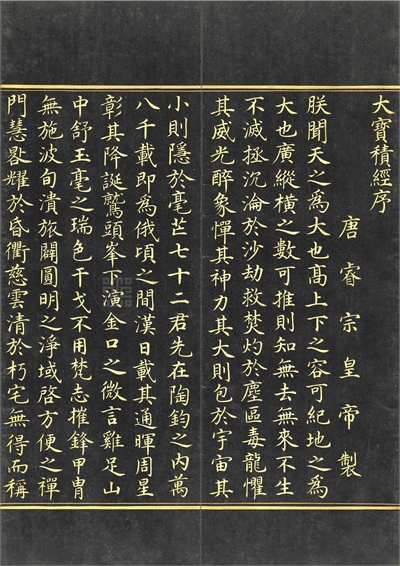 大寶積經序
唐睿宗皇帝製
朕聞天之為大也高上下之容可紀地之為
大也廣縱橫之數可推則知無去無來不生
不滅拯沉淪於沙劫救焚灼於塵區毒龍懼
其威光醉象憚其神力其大則包於宇宙其
小則隱於毫芒七十二君先在陶鈞之內萬
八千載即為俄頃之間漢日載其通暉周星
彰其降誕鷲頭峯下演金口之微言雞足山
中舒玉毫之瑞色干戈不用梵志摧鋒甲冑
無施波旬潰旅闢圓明之淨域啓方便之禪
門慧晷耀於昏衢慈雲清於朽宅無得而稱